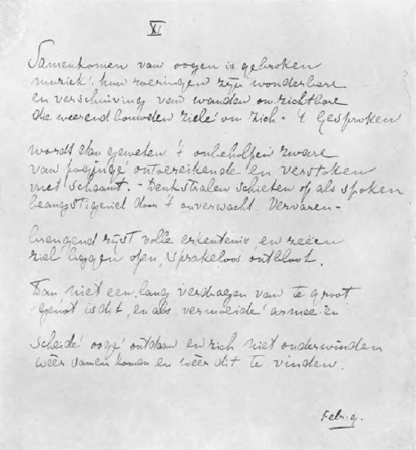 XI
Samenkomen van oogen is gebroken
muziek: hun roeringen zijn wonderbare
en verschuiving van wanden onzichtbare
die weerend bouwden ziele' om zich. - 't Gesproken
wordt dan geweten 't onbeholpen zware
van poginge' ontoereikende en verstoken
met schaamt. - Denkstralen schieten of als spoken
beangstigend door 't onverwacht
rijst volle erkentenis en
open, sprakeloos ontbloot.
Dan niet een lang verdragen van te groot
genot is dit, en als vermoeide' armeeën
Scheide' ooge' ontdaan en zich niet onderwinden
wéér samen komen en wéér dit te vinden.
Febr. 9.